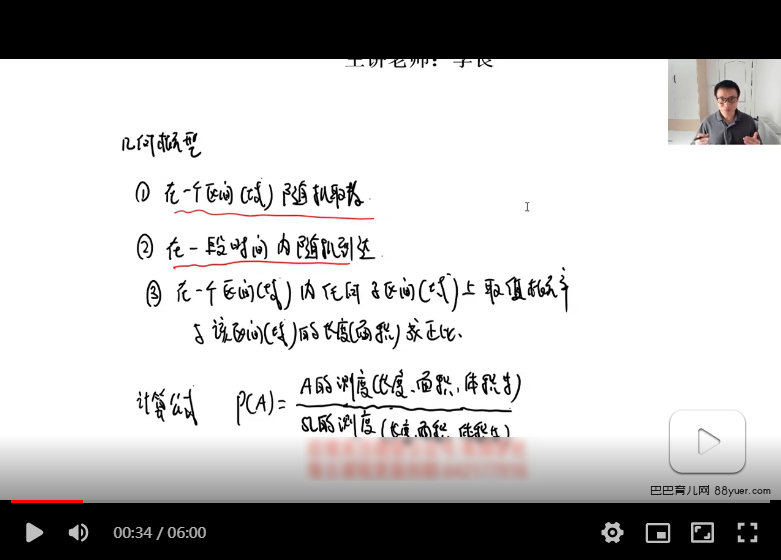 主讲老师：李良
几何概型
① 在一个区间(域)随机取数
② 在一段时间内随机到达
③ 在一个区间(域)内任何子区间(域)上取值概率
与该区间(域)的长度(面积)成正比.
计算公式 P(A)= A的测度(长度、面积、体积等)
Ω的测度(长度、面积、体积等)
巴巴育儿网 88yuer.com
00:34 / 06:00